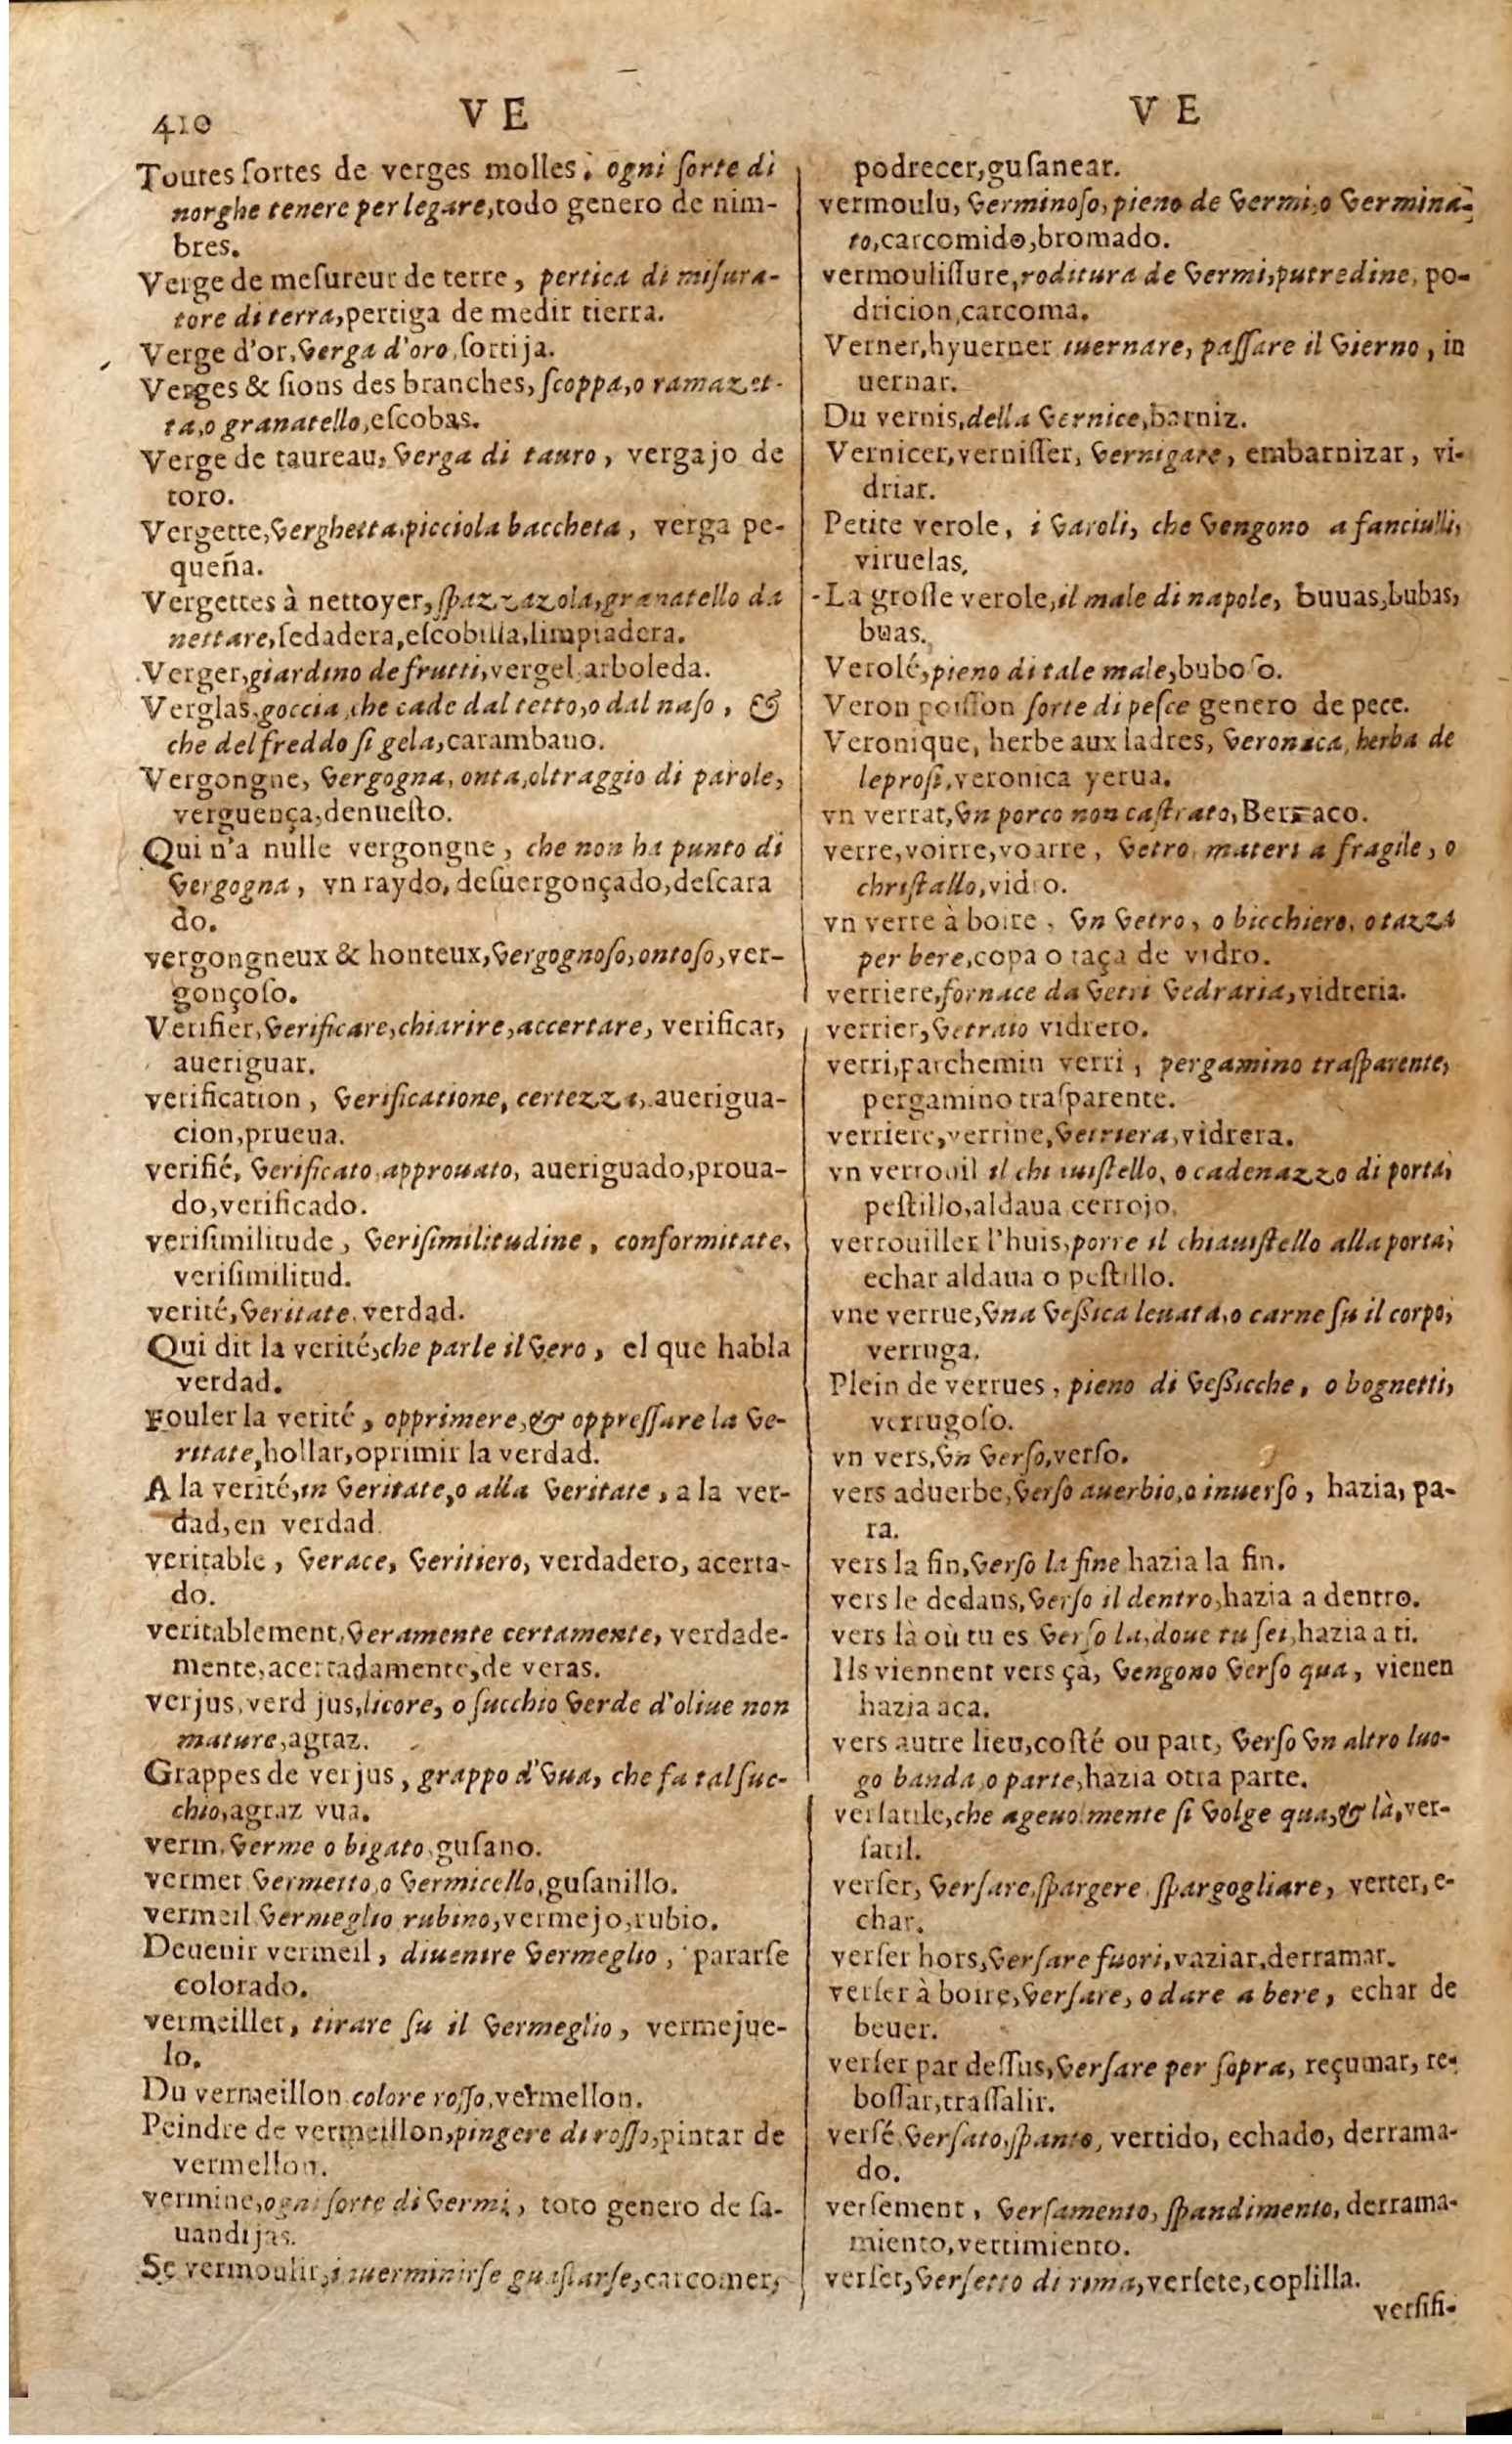 410
V E
V E
Toutes ſortes de verges molles, ogni ſorte di
norghe tenere per legare, todo genero de nim-
bres.
Verge de meſureur de terre, pertica di miſura-
tore di terra, pertiga de medir tierra.
Verge d'or, verga d'oro, ſortija.
Verges & ſions des branches, ſcoppa, o ramazet-
ta, o granatello, eſcobas.
Verge de taureau, verga di tauro, vergajo de
toro.
Vergette, verghetta, picciola baccheta, verga pe-
queña.
Vergettes à nettoyer, ſpazzazola, granatello da
nettare, ſedadera, eſcobilla, limpiadera.
Verger, giardino de frutti, vergel, arboleda.
Verglas, goccia, che cade dal tetto, o dal naſo, &
che del freddo ſi gela, carambano.
Vergongne, vergogna, onta, oltraggio di parole,
verguença, denueſto.
Qui n'a nulle vergongne, che non ha punto di
vergogna, vn raydo, deſuergonçado, deſcara
do.
vergongneux & honteux, vergognoſo, ontoſo, ver-
gonçoſo.
Verifier, verificare, chiarire, accertare, verificar,
aueriguar.
verification, verificatione, certezza, auerigua-
cion, prueua.
verifié, verificato, approuato, aueriguado, proua-
do, verificado.
veriſimilitude, veriſimilitudine, conformitate,
veriſimilitud.
verité, veritate, verdad.
Qui dit la verité, che parle il vero, el que habla
verdad.
Fouler la verité, opprimere, & oppreſſare la ve-
ritate, hollar, oprimir la verdad.
A la verité, in veritate, o alla veritate, a la ver-
dad, en verdad.
veritable, verace, veritiero, verdadero, acerta-
do.
veritablement, veramente certamente, verdade-
mente, acertadamente, de veras.
verjus, verd jus, licore, o ſucchio verde d'oliue non
mature, agraz.
Grappes de verjus, grappo d'vua, che fa tal ſuc-
chio, agraz vua.
verm, verme o bigato, guſano.
vermet vermetto, o vermicello, guſanillo.
vermeil vermeglio rubino, vermejo, rubio.
Deuenir vermeil, diuenire vermeglio, pararſe
colorado.
vermeillet, tirare ſu il vermeglio, vermejue-
lo.
Du vermeillon colore roſſo, vermellon.
Peindre de vermeillon, pingere di roſſo, pintar de
vermellon.
vermine, ogni ſorte di vermi, toto genero de ſa-
uandijas.
Se vermoulir, inuerminirſe guaſtarſe, carcomer,
podrecer, guſanear.
vermoulu, verminoſo, pieno de vermi, o vermina-
to, carcomido, bromado.
vermouliſſure, roditura de vermi, putredine, po-
dricion, carcoma.
Verner, hyuerner iuernare, paſſare il vierno, in
uernar.
Du vernis, della vernice, barniz.
Vernicer, verniſſer, vernigare, embarnizar, vi-
driar.
Petite verole, i varoli, che vengono a fanciulli,
viruelas.
La groſſe verole, il male di napole, buuas, bubas,
buas.
Verolé, pieno di tale male, buboſo.
Veron poiſſon ſorte di peſce genero de pece.
Veronique, herbe aux ladres, veronica, herba de
leproſi, veronica yerua.
vn verrat, vn porco non caſtrato, Berraco.
verre, voirre, voarre, vetro, materi a fragile, o
chriſtallo, vidro.
vn verre à boire, vn vetro, o bicchiero, o tazza
per bere, copa o taça de vidro.
verriere, fornace da vetri vedraria, vidreria.
verrier, vetraio vidrero.
verri, parchemin verri, pergamino traſparente,
pergamino traſparente.
verriere, verrine, vetriera, vidrera.
vn verrouil il chiauiſtello, o cadenazzo di porta,
peſtillo, aldaua cerrojo.
verrouiller l'huis, porre il chiauiſtello alla porta,
echar aldaua o peſtillo.
vne verrue, vna veßica leuata, o carne ſu il corpo,
verruga.
Plein de verrues, pieno di veßicche, o bognetti,
verrugoſo.
vn vers, vn verſo, verſo.
vers aduerbe, verſo auerbio, o inuerſo, hazia, pa-
ra.
vers la fin, verſo la fine hazia la fin.
vers le dedans, verſo il dentro, hazia a dentro.
vers là où tu es verſo la, doue tu ſei, hazia a ti.
Ils viennent vers çà, vengono verſo qua, vienen
hazia aca.
vers autre lieu, coſté ou part, verſo vn altro luo-
go banda, o parte, hazia otra parte.
verſatile, che ageuolmente ſi volge qua, & là, ver-
ſatil.
verſer, verſare, ſpargere ſpargogliare, verter, e-
char.
verſer hors, verſare fuori, vaziar, derramar.
verſer à boire, verſare, o dare a bere, echar de
beuer.
verſer par deſſus, verſare per ſopra, reçumar, re-
boſſar, traſſalir.
verſé verſato, ſpanto, vertido, echado, derrama-
do.
verſement, verſamento, ſpandimento, derrama-
miento, vertimiento.
verſet, verſetto di rima, verſete, coplilla.
verſifi-